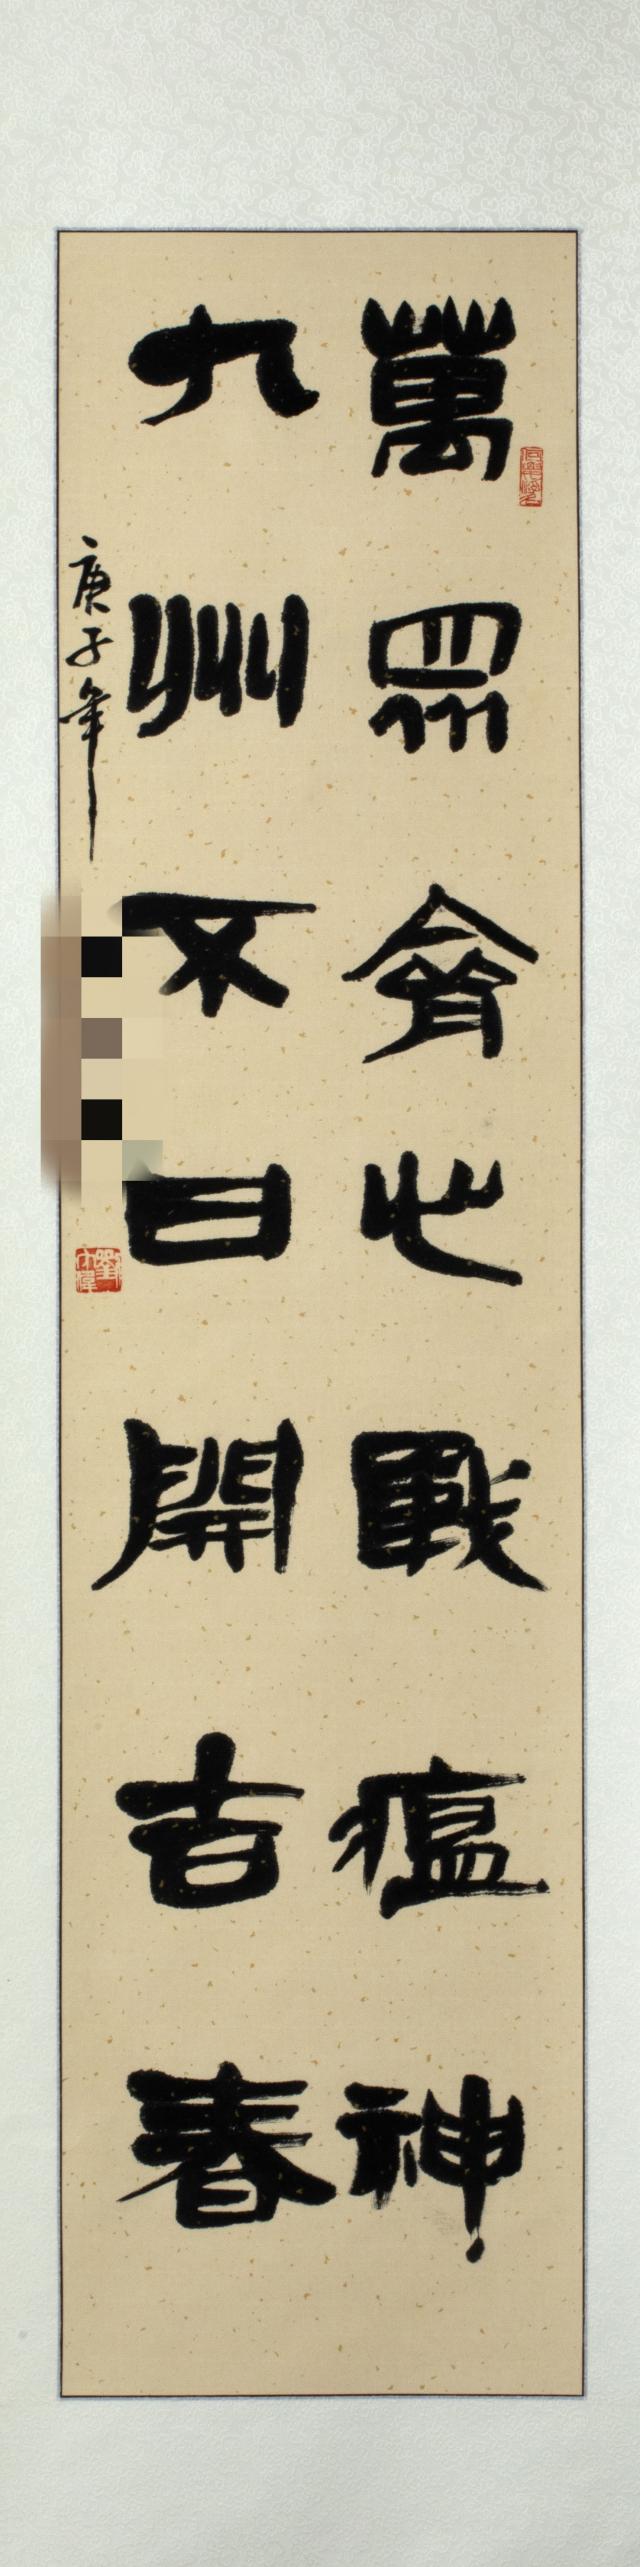 萬眾齊心戰瘟神
九州不日開吉春
庚子年